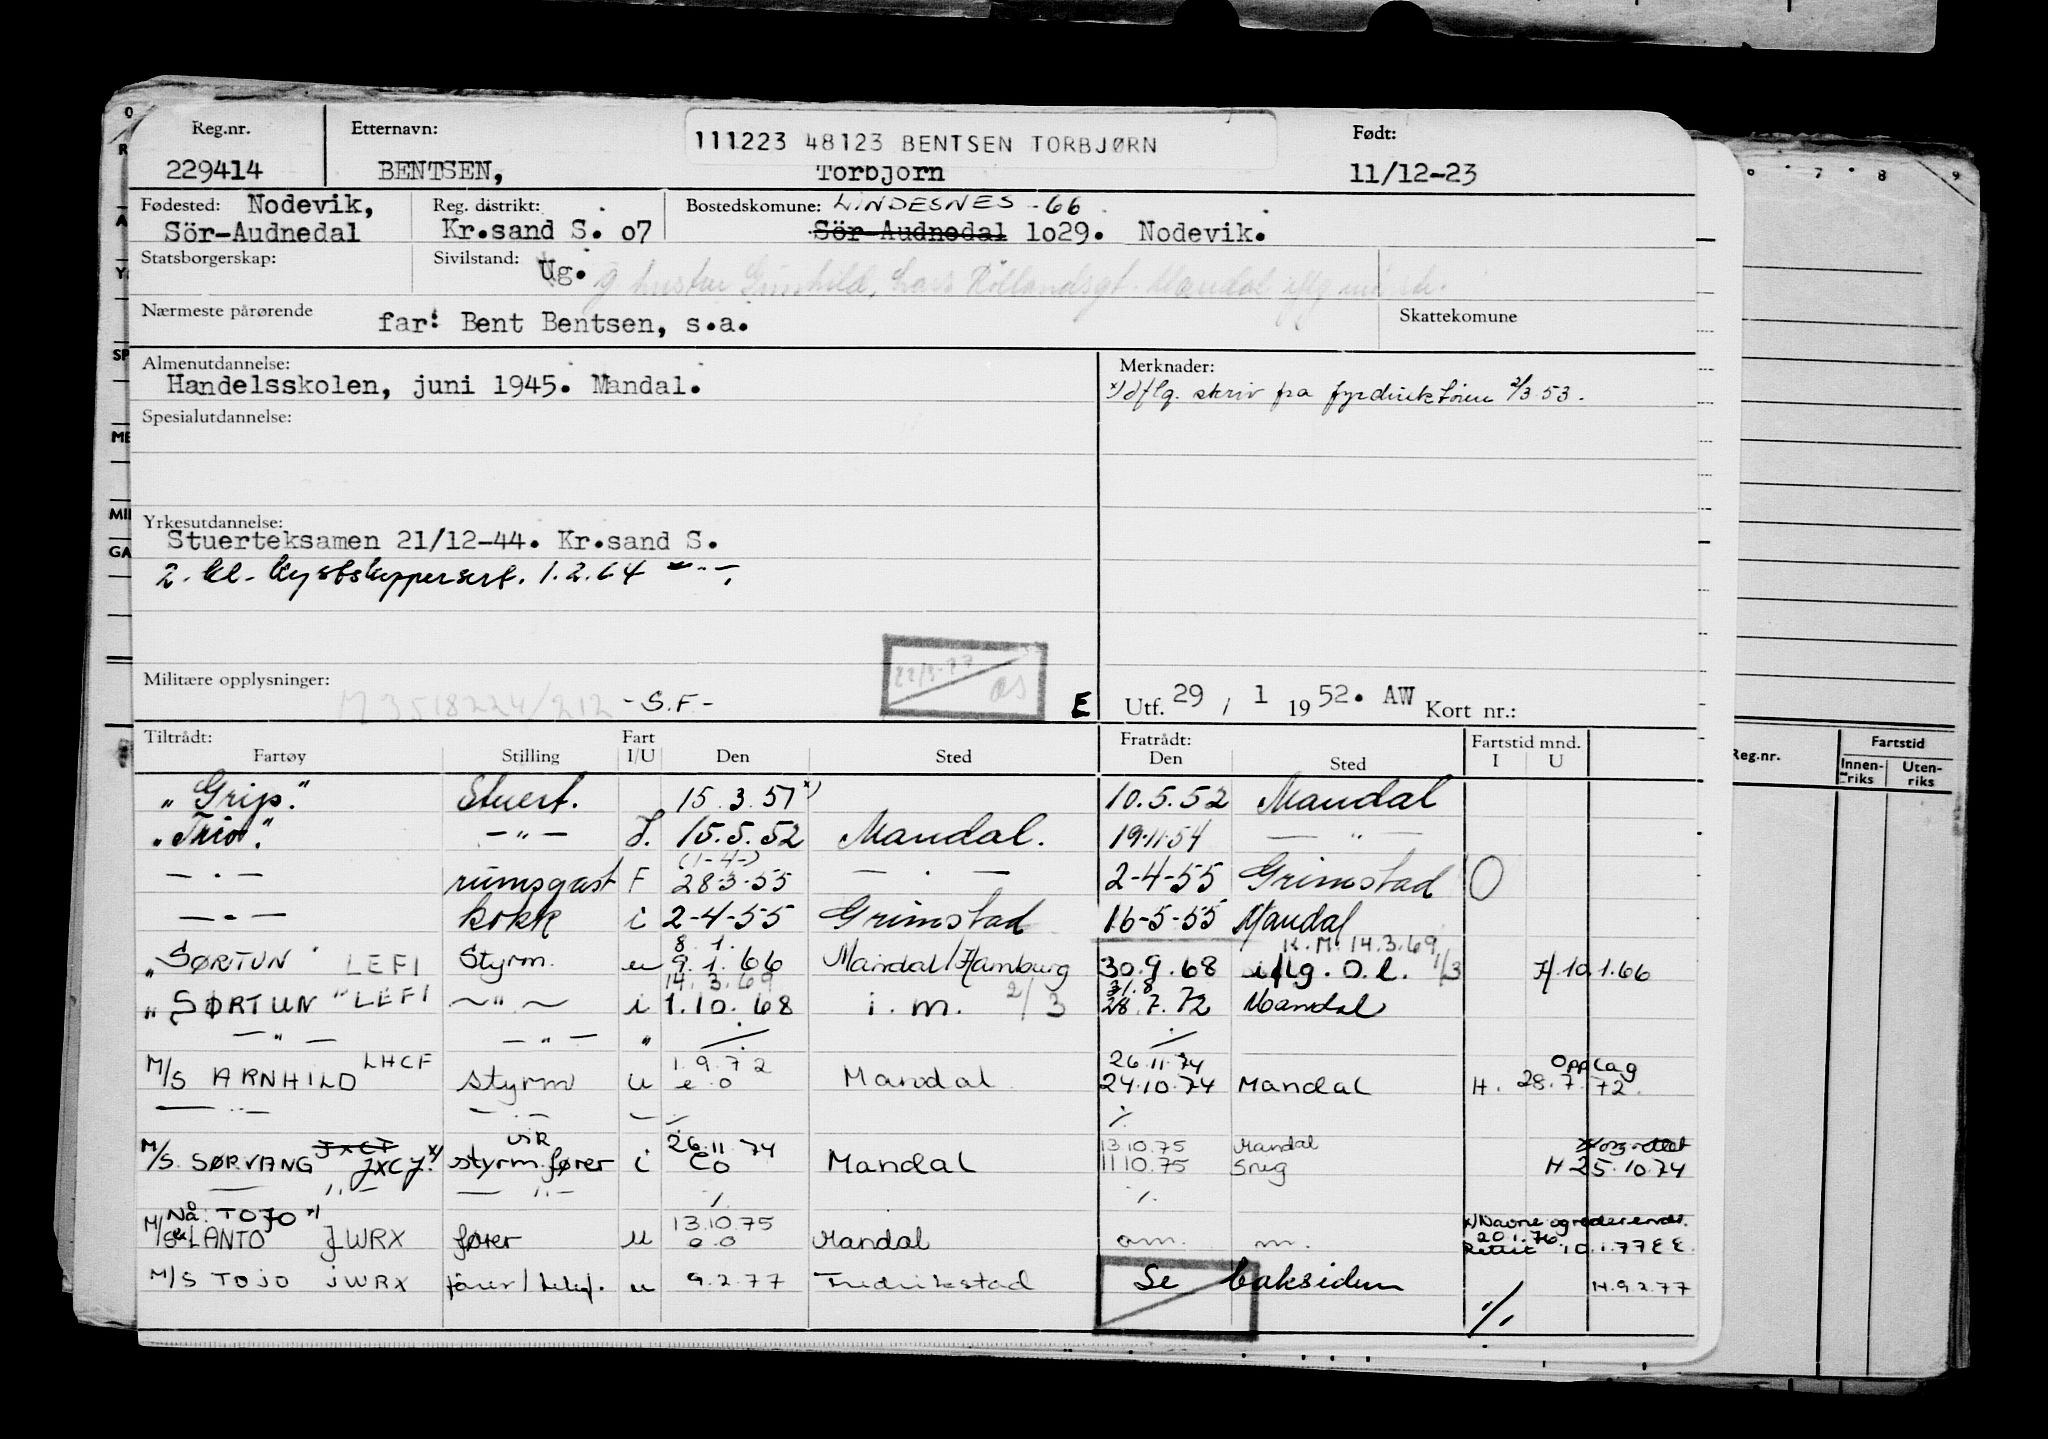 Reg.nr. Etternavn: 111223 48123 BENTSEN TORBJØRN Født:
229414 BENTSEN, Torbjörn 11/12-23
Fødested: Nodevik, Reg. distrikt: Bostedskomune: LINDESNES -66
Sör-Audnedal Kr.sand S. o7 Sör-Audnedal 1o29. Nodevik.
Statsborgerskap: Sivilstand: Ug.
g. hustru Gunhild, Mandal
Nærmeste pårørende far: Bent Bentsen, s.a. Skattekomune
Almenutdannelse: Merknader:
Handelsskolen, juni 1945. Mandal. x) Iflg. skriv fra fyrdirektören 2/3 53.
Spesialutdannelse:
Yrkesutdannelse:
Stuerteksamen 21/12-44. Kr.sand S.
2. kl. kystskippersert. 1.2.64 -"-
Militære opplysninger: M 3518224/212 -S.F.- E Utf. 29 / 1 1952. AW Kort nr.:
Tiltrådt: Fart Fratrådt: Fartstid mnd.
Fartøy Stilling I/U Den Sted Den Sted I U
"Grip." Stuert. 15.3.51 x) 10.5.52 Mandal
"Trio". -"- I. 15.5.52 Mandal. 19.11.54 -"-
(1-4-)
-"- rumsgast F 28-3-55 -"- 2-4-55 Grimstad O
-"- kokk i 2-4-55 Grimstad 16-5-55 Mandal
8.1. K.M. 14.3.69
"SØRTUN" LEFI Styrm. u 9.1.66 Mandal/Hamburg 30.9.68 iflg. O.l. 1/3 H 10.1.66
14.3.69 31.8
"SØRTUN" LEFI -"- i 1.10.68 i.m. 2/3 28.7.72 Mandal
-"- -"- " ./. ./.
LHCF 1.9.72 26.11.74 Opplag
M/S ARNHILD styrm u e.o Mandal 24.10.74 Mandal H. 28.7.72.
-"- -"- - ./. ./.
JXCI vik 26.11.74 13.10.75 Mandal
M/S. SØRVANG JXCJ. x) styrm. fører i eo Mandal 11.10.75 Snig H 25.10.74
-"- -"- ./. ./.
Nå: TOJO x) 13.10.75 x) Navne og rederendr.
M/S LANTO JWRX fører u e.o Mandal om. m. 20.1.76. Rettet 10.1.77 EE.
M/S TOJO JWRX förer/ u 9.2.77 Fredrikstad Se baksiden ./. H.9.2.77
Reg.nr. Fartstid
Innenriks Utenriks